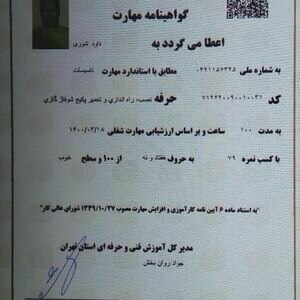 گواهینامه مهارت
اعطا می گردد به
دارد شوری
به شماره ملی ۰۴۴۱۱۵۶۳۲۵ مطابق با استاندارد مهارت تاسیسات
حرفه نصب، راه اندازی و تعمیر پکیج شوفاژ گازی کد ۷۱۲۶۲۰۰۹۰۰۱۰۰۳۱
به مدت ۱۰۰ ساعت و بر اساس ارزشیابی مهارت شغلی ۱۴۰۰/۰۳/۱۸
با کسب نمره ۷۹ به حروف هفتاد و نه از ۱۰۰ و سطح خوب
"به استناد ماده ۶ آیین نامه کارآموزی و افزایش مهارت مصوب ۱۳۳۹/۱۰/۲۷ شورای عالی کار"
مدیر کل آموزش فنی و حرفه ای استان تهران
جواد روان بخش